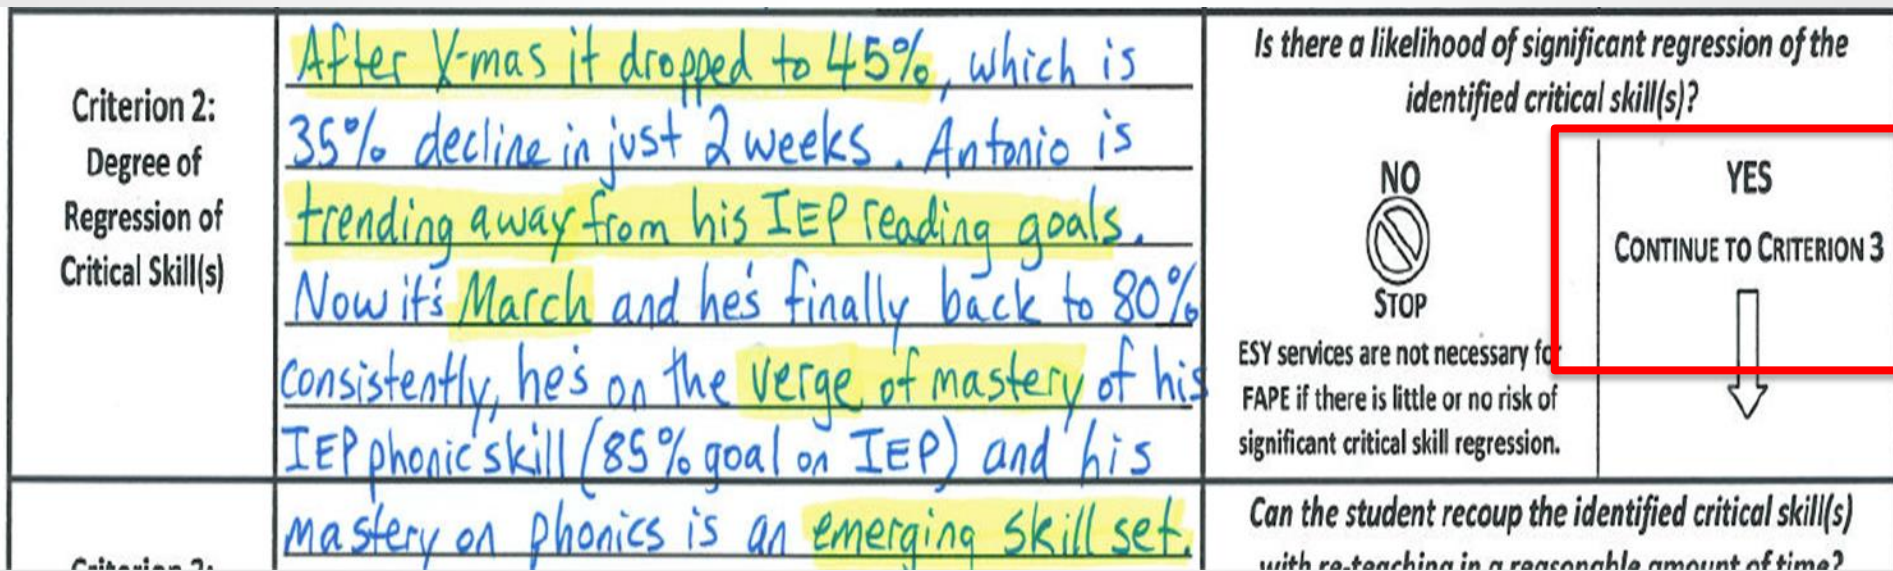 Criterion 2:
Degree of
Regression of
Critical Skill(s)
After X-mas it dropped to 45%, which is
35% decline in just 2 weeks. Antonio is
trending away from his IEP reading goals.
Now it's March and he's finally back to 80%
consistently, he's on the verge of mastery of his
IEP phonic skill (85% goal on IEP) and his
mastery on phonics is an emerging skill set.
Is there a likelihood of significant regression of the
identified critical skill(s)?
NO
STOP
ESY services are not necessary for
FAPE if there is little or no risk of
significant critical skill regression.
YES
CONTINUE TO CRITERION 3
Can the student recoup the identified critical skill(s)
with re-teaching in a reasonable amount of time?